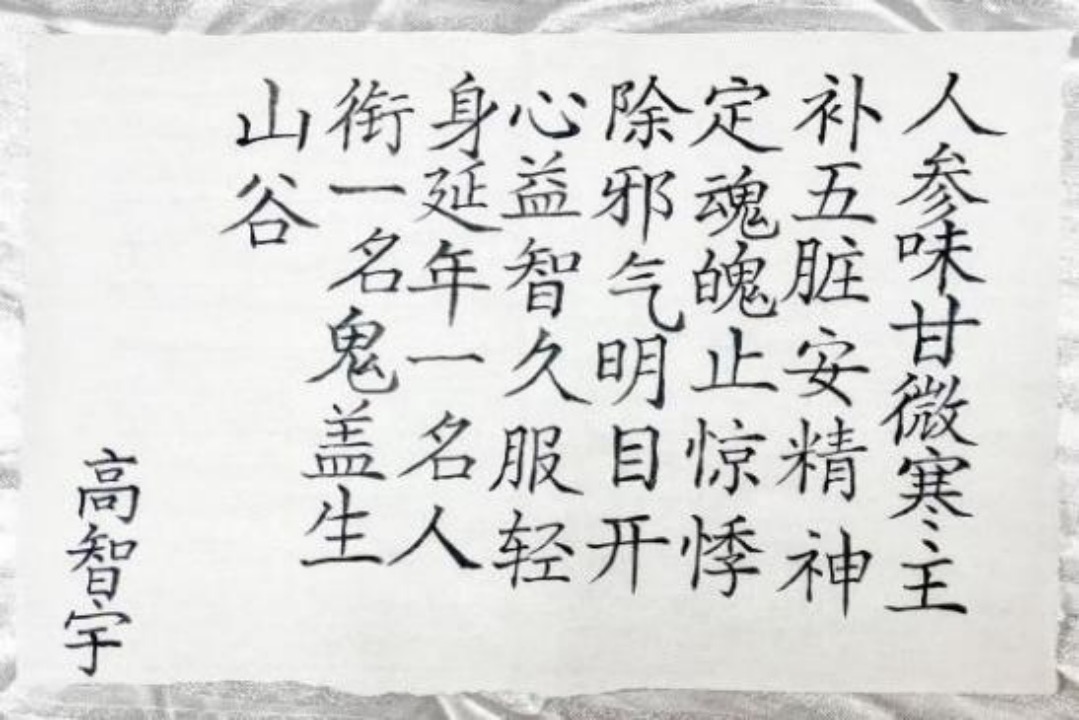 人参味甘微寒主
补五脏安精神
定魂魄止惊悸
除邪气明目开
心益智久服轻
身延年一名人
衔一名鬼盖生
山谷
高智宇